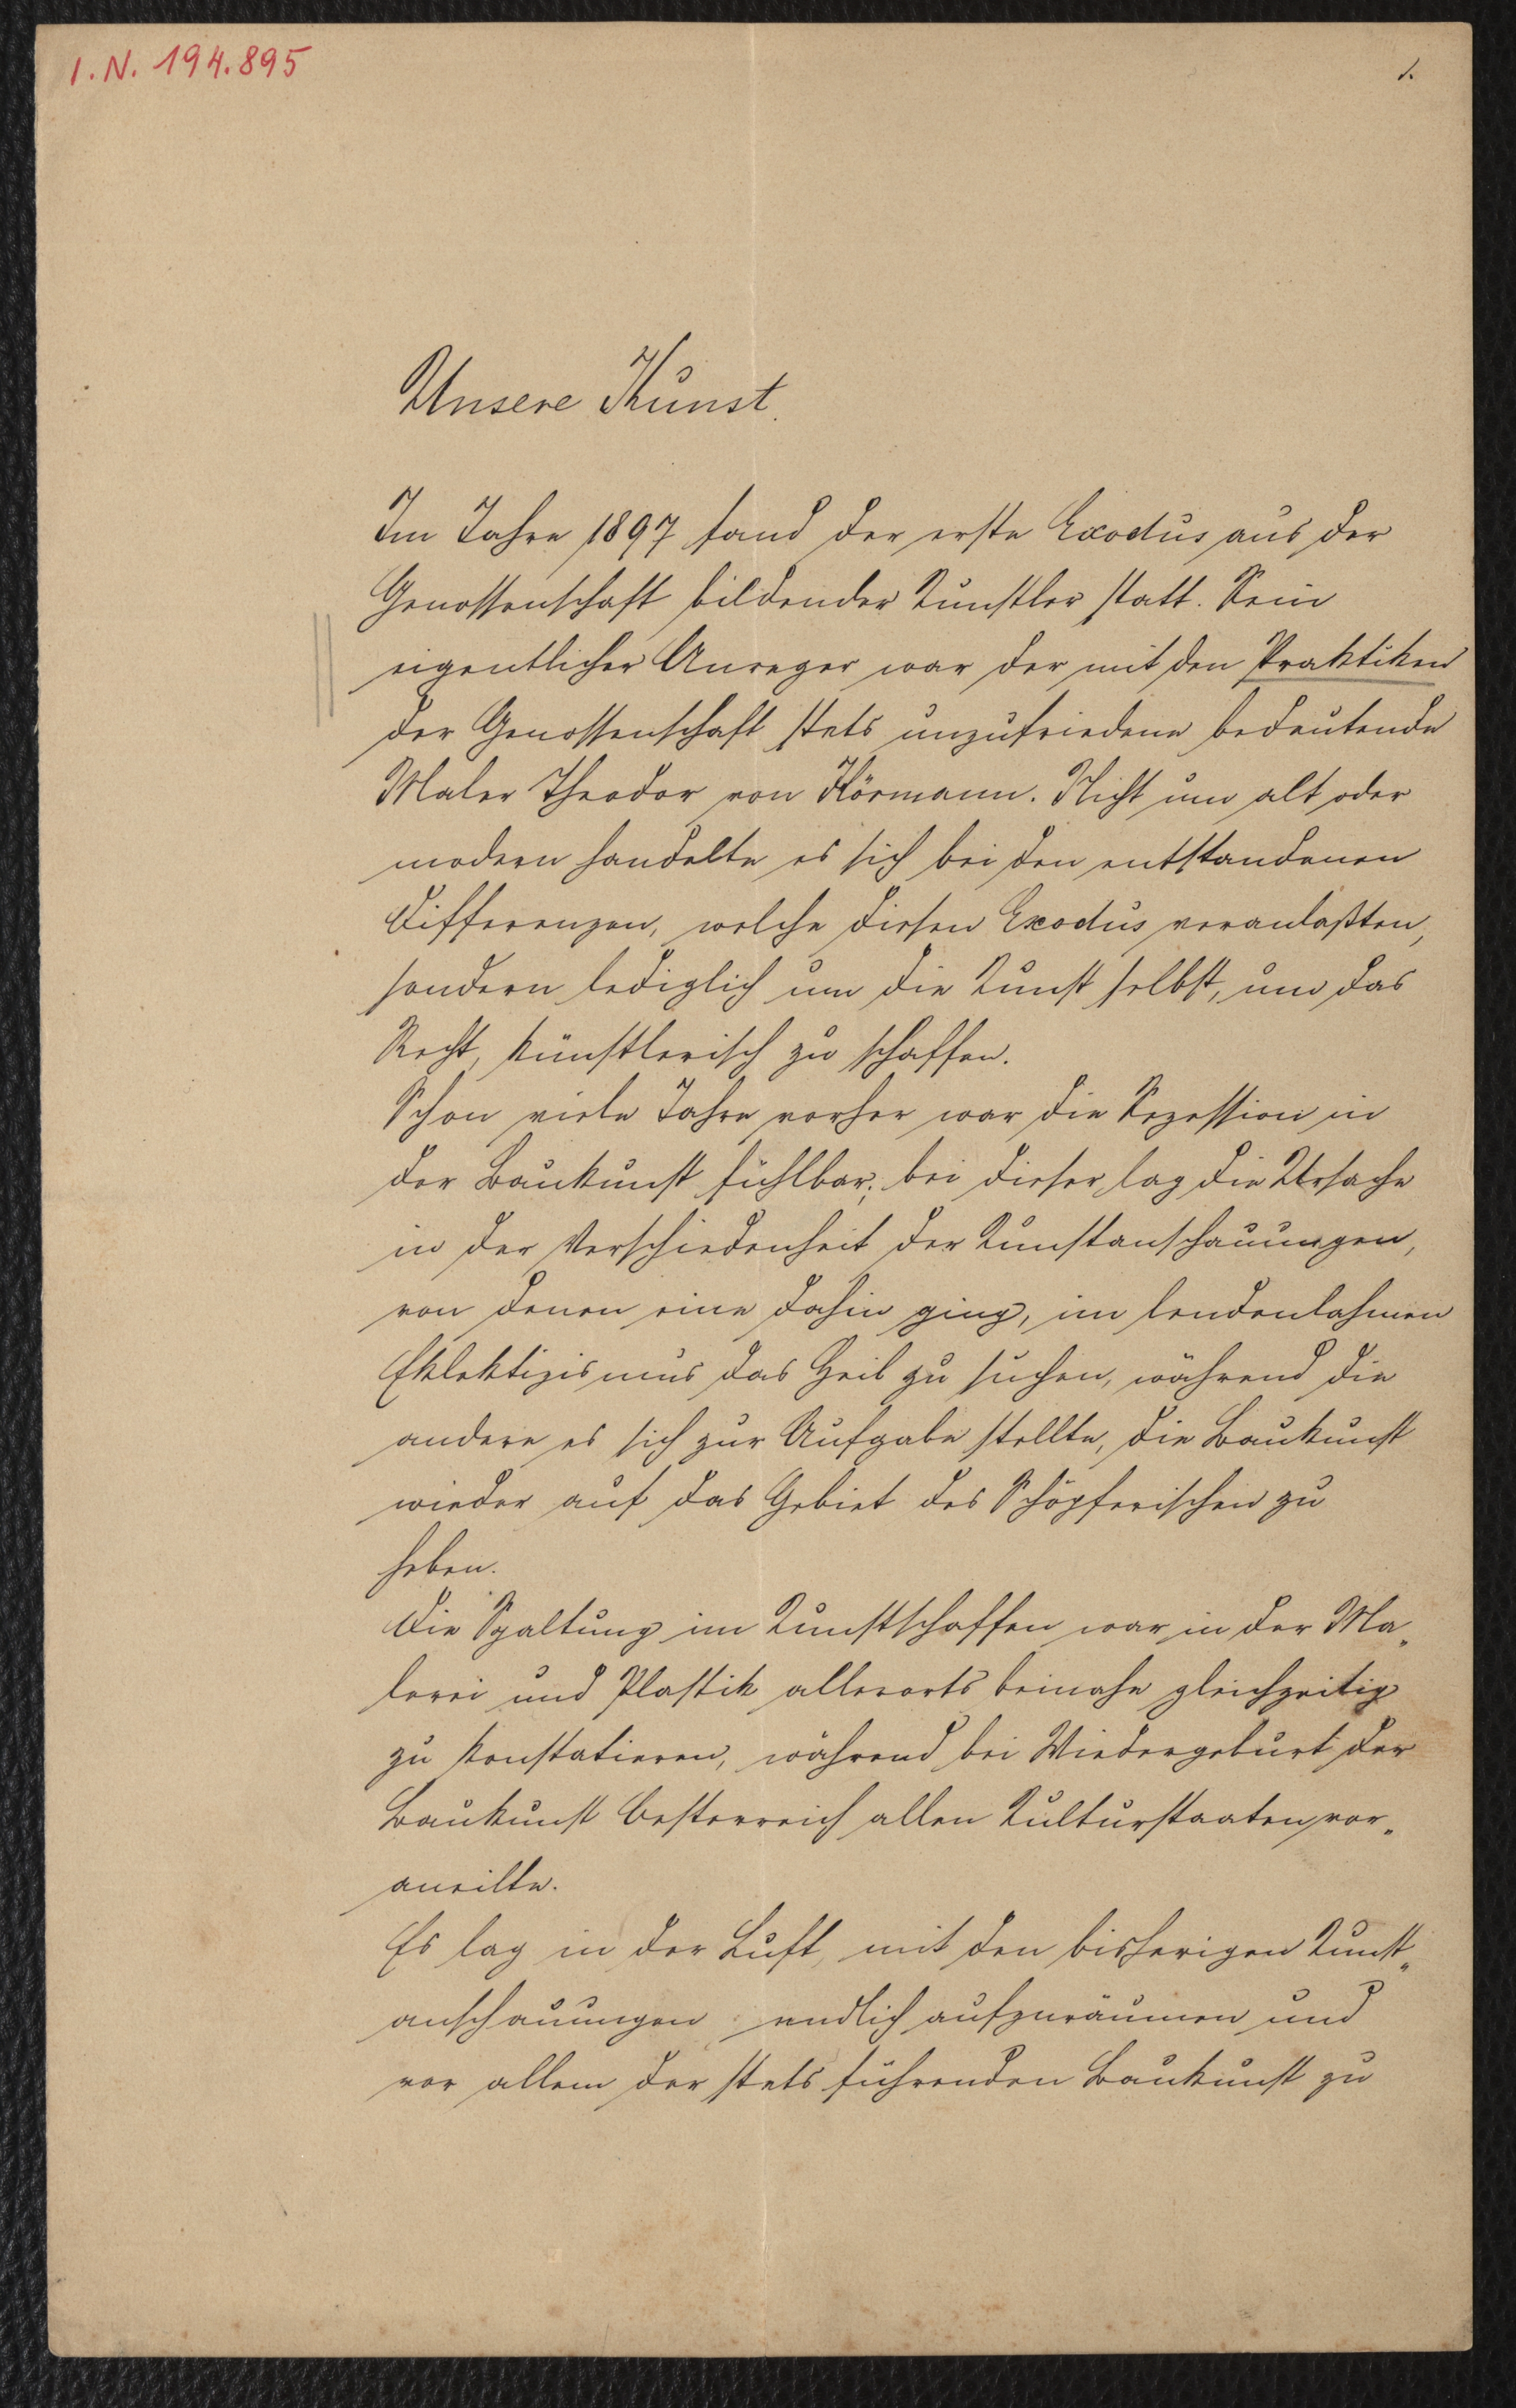 I.N. 194.895
1.
Unsere Kunst.
Im Jahre 1897 fand der erste Exodus aus der
Genossenschaft bildender Künstler statt. Sein
eigentlicher Anreger war der mit den Praktiken
der Genossenschaft stets unzufriedene bedeutende
Maler Theodor von Hörmann. Nicht um alt oder
modern handelte es sich bei den entstandenen
Differenzen, welche diesen Exodus veranlaßten,
sondern lediglich um die Kunst selbst, um das
Recht, künstlerisch zu schaffen.
Schon viele Jahre vorher war die Sezession in
der Baukunst fühlbar; bei dieser lag die Ursache
in der Verschiedenheit der Kunstanschauungen,
von denen eine dahin ging, im lendenlahmen
Eklektizismus das Heil zu suchen, während die
andere es sich zur Aufgabe stellte, die Baukunst
wieder auf das Gebiet des Schöpferischen zu
heben.
Die Spaltung im Kunstschaffen war in der Ma„
lerei und Plastik allerorts beinahe gleichzeitig
zu konstatieren, während bei Wiedergeburt der
Baukunst Oesterreich allen Kulturstaaten vor„
aneilte.
Es lag in der Luft, mit den bisherigen Kunst„
anschauungen endlich aufzuräumen und
vor allem der stets führenden Baukunst zu